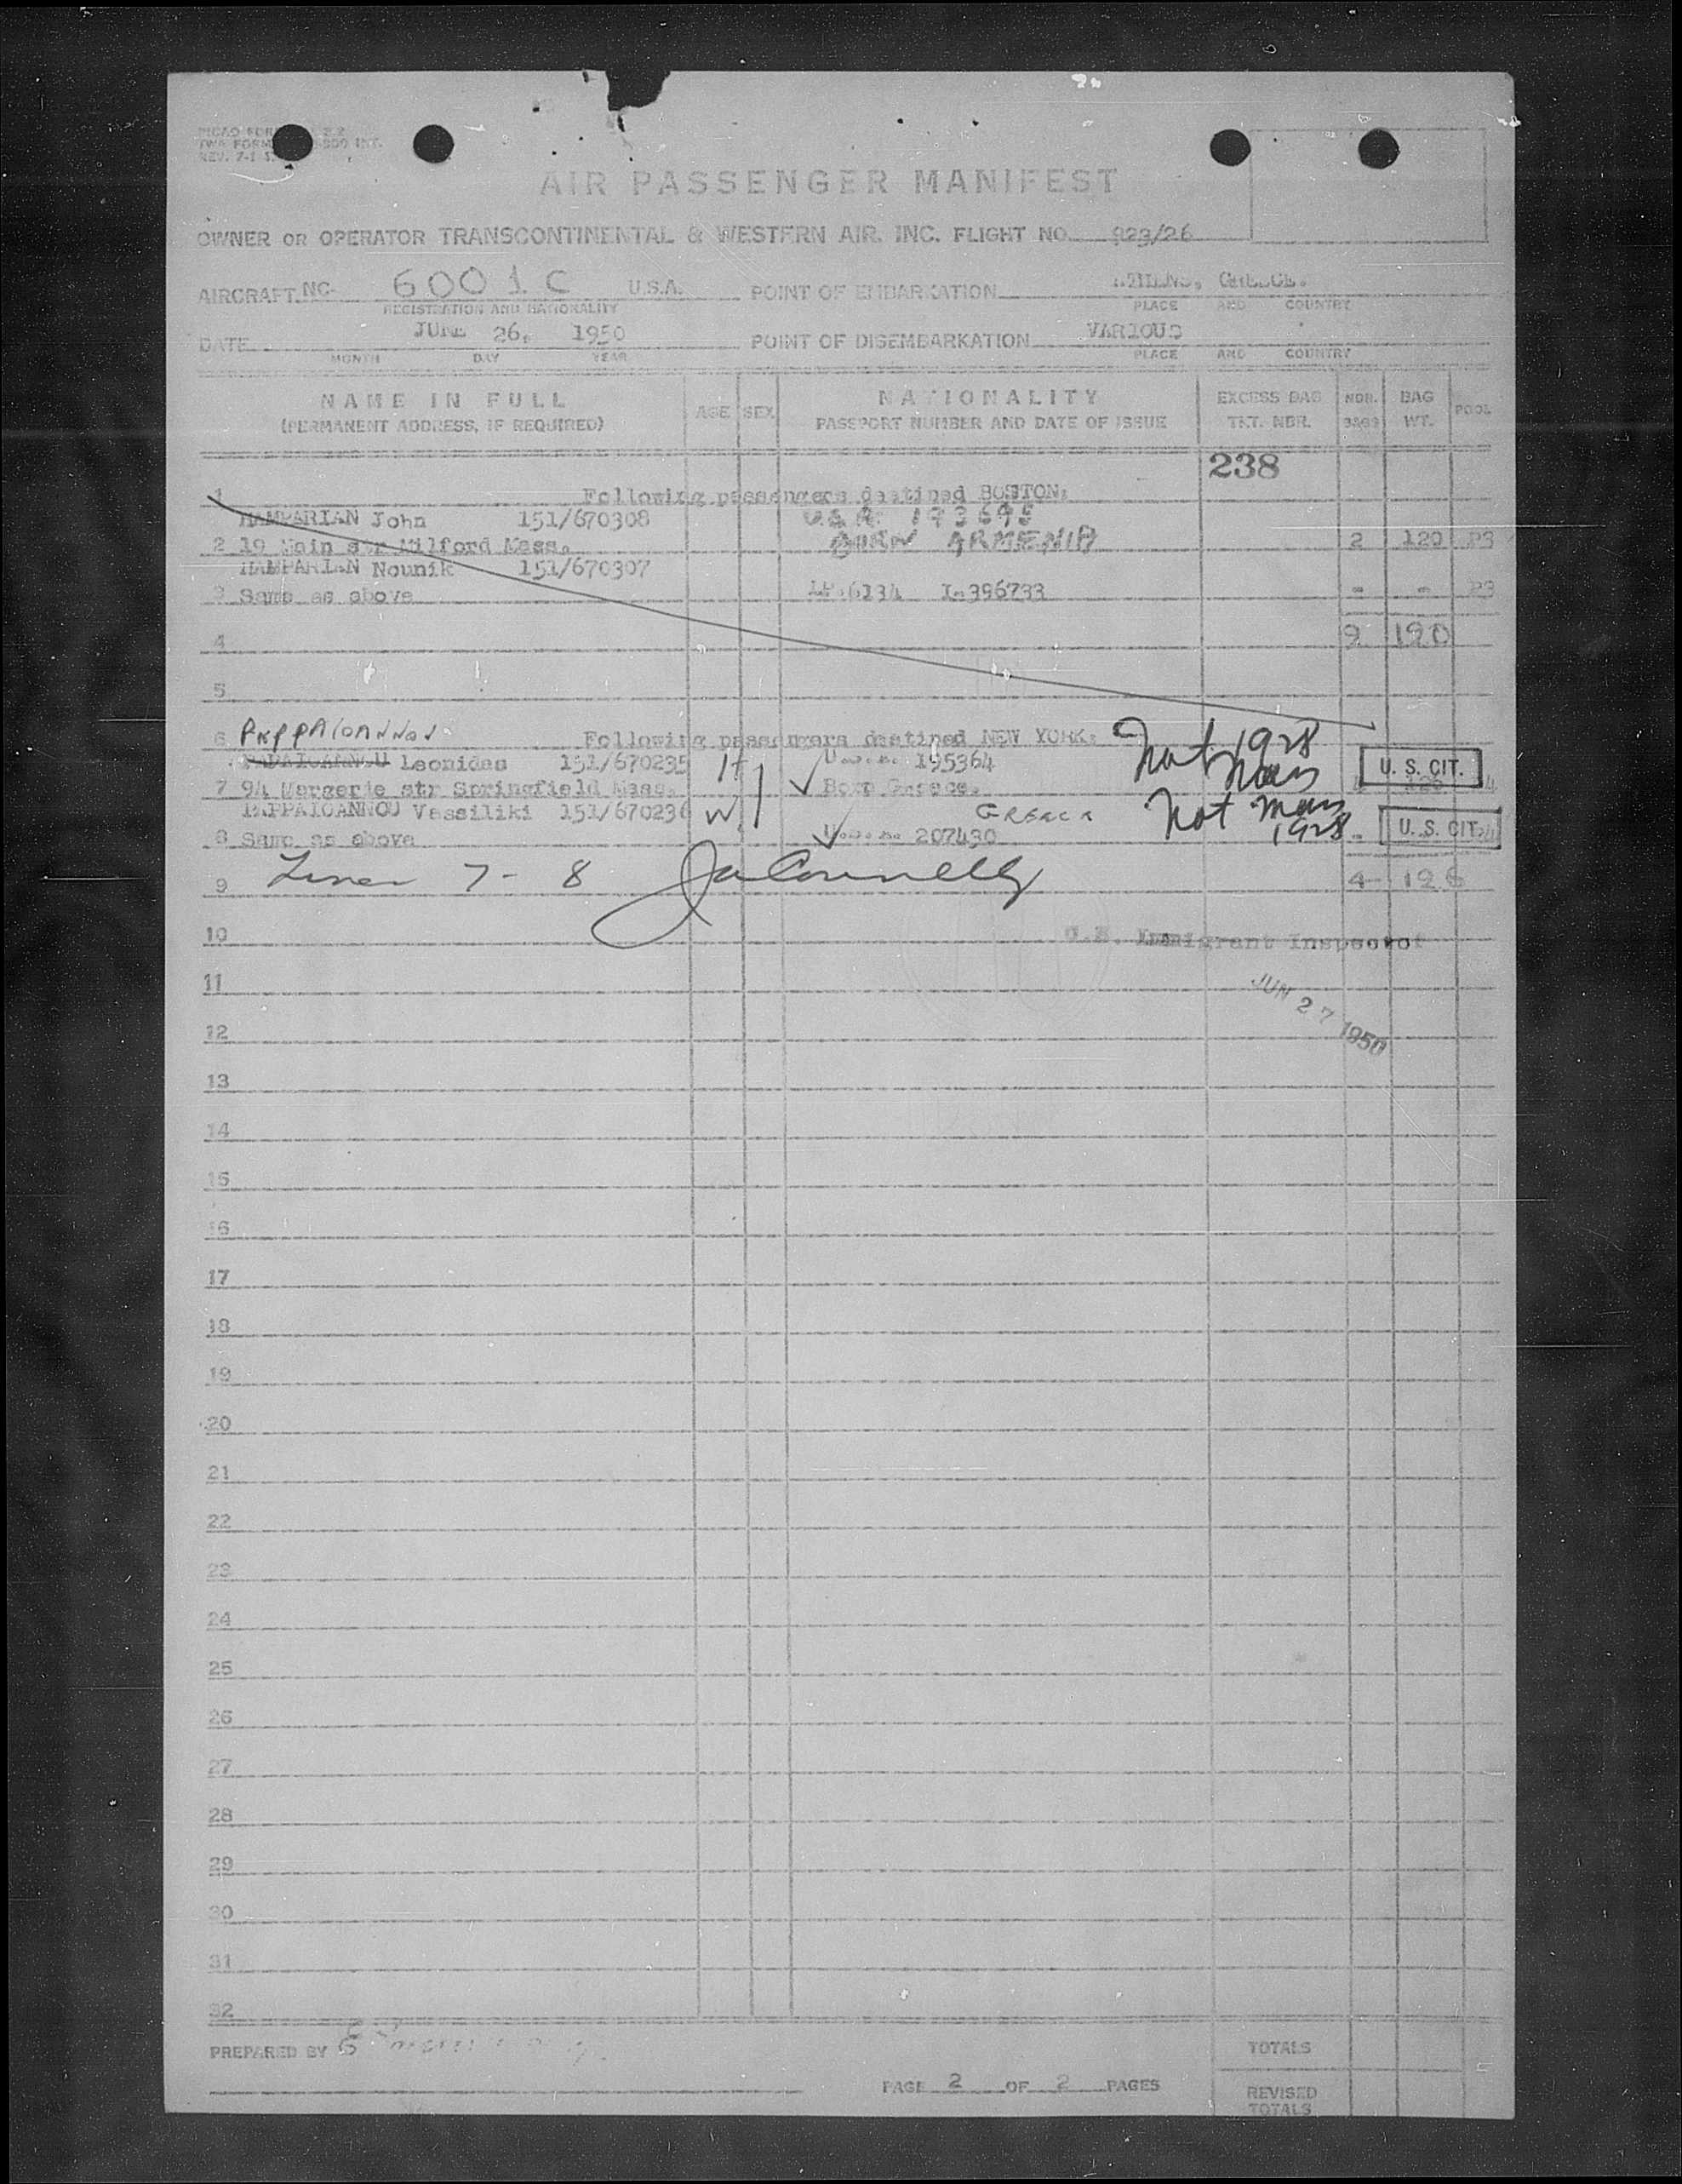 AIR PASSENGER MANIFEST
OWNER OR OPERATOR TRANSCONTINENTAL & WESTERN AIR. INC. FLIGHT NO. 923/26
AIRCRAFT NC- 6001C U.S.A. POINT OF EMBARKATION ATHENS, GREECE.
REGISTRATION AND NATIONALITY PLACE AND COUNTRY
DATE JUNE 26, 1950 POINT OF DISEMBARKATION VARIOUS
MONTH DAY YEAR PLACE AND COUNTRY
NAME IN FULL AGE SEX NATIONALITY EXCESS BAG NBR. BAG POOL
(PERMANENT ADDRESS, IF REQUIRED) PASSPORT NUMBER AND DATE OF ISSUE TKT. NBR. BAGS WT.
238
1 Following passengers destined BOSTON:
HAMPARIAN John 151/670308 U.S.A.
2 19 Main str Milford Mass. BORN ARMENIA 2 120 P3
HAMPARIAN Nounik 151/670307
3 Same as above 6134 I-396733 - - P3
4 2 120
5
6 PAPPAIOANNOU Following passengers destined NEW YORK: Nat 1928
PAPAIOANNOU Leonidas 151/670235 H 195364 Mass U. S. CIT.
7 94 Margerie str Springfield Mass. Born Greece.
PAPPAIOANNOU Vassiliki 151/670236 W GREECE Nat Mass
8 Same as above 207430 1928 - U. S. CIT.
9 Lines 7 - 8 JaConnelly 4 126
10 U.S. Immigrant Inspector
11 JUN 27 1950
12
13
14
15
16
17
18
19
20
21
22
23
24
25
26
27
28
29
30
31
32
PREPARED BY TOTALS
PAGE 2 OF 2 PAGES REVISED
TOTALS